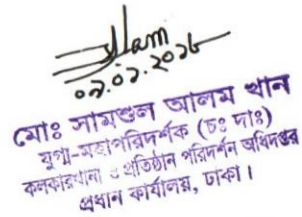 ০৭.০১.২০১৮
মোঃ সামশুল আলম খান
যুগ্ম-মহাপরিদর্শক (চঃ দাঃ)
কলকারখানা ও প্রতিষ্ঠান পরিদর্শন অধিদপ্তর
প্রধান কার্যালয়, ঢাকা।